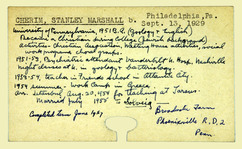 CHENEN, STANLEY MARSHALL b. Philadelphia, Pa.
Sept. 13, 1929
University of Pennsylvania, 1951 B.A. (Geology + English)
Became a Christian during College (Jewish background)
activities - Christian Association, Meeting House activities, social
work program, choral groups.
1951-53, Psychiatric attendant Vanderbilt U. Hosp. Nashville
night classes at U. in geology + bacteriology.
1953-54, teacher in Friends School in Atlantic City.
1954 summer - work camp in Greece.
Arr. Aug. 30, 1954 for teaching at Tarsus.
Married July 1955 Solveig
Completed term June 1957
Farm
Phoenixville R.D. 2
Penn